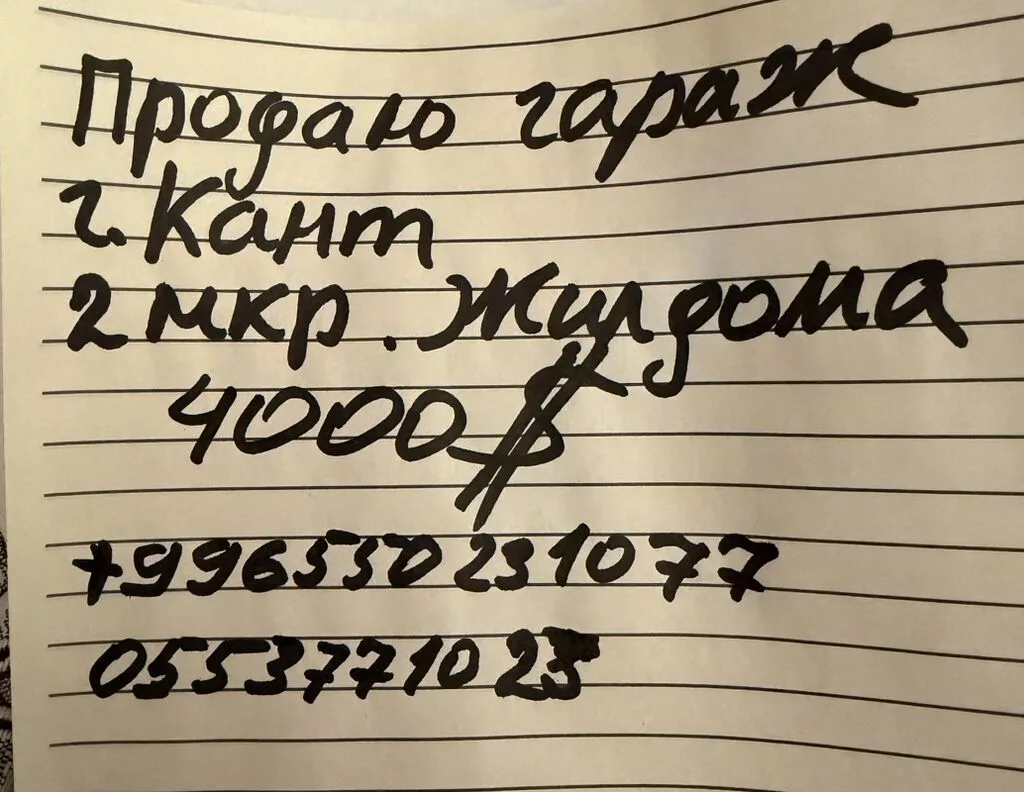 Продаю гараж
г. Кант
2 мкр. Жилдома
4000$
+996550 231077
0553771023